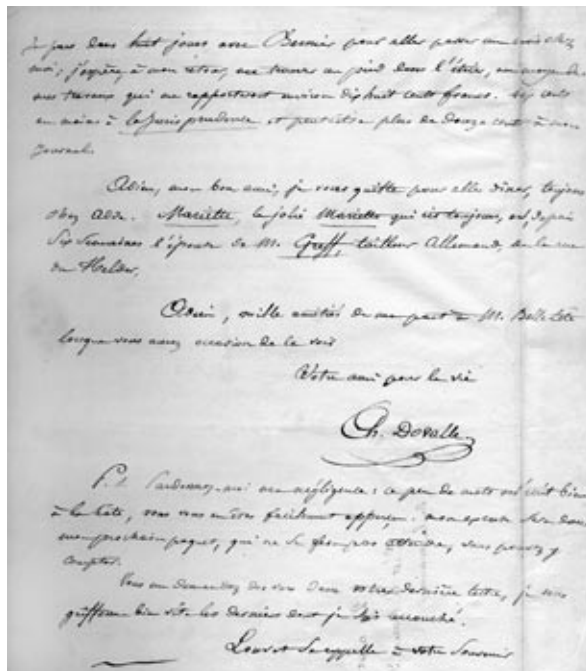 Je pars dans huit jours avec Bernier pour aller passer un mois chez
moi, j'espère, à mon retour, me trouver un pied dans l'étrier, au moyen de
mes travaux qui me rapporteront environ dix huit cents francs. six cents
au moins à la Jurisprudence et peut être plus de douze cents à mon
journal.
Adieu, mon bon ami, je vous quitte pour aller dîner, toujours
chez Alde. Mariette, la jolie Mariette qui rit toujours, est, depuis
six semaines l'épouse de M. Greff, tailleur Allemand, de la rue
du Helder,
Adieu, mille amitiés de ma part à M. Belle
lorsque vous aurez occasion de le voir
Votre ami pour la vie
Ch. Dovalle
P. S. Pardonnez-moi ma négligence : ce peu de mots est écrit bien
à la hâte, vous vous en êtes facilement apperçu. mon excuse sera dans
mon prochain paquet, qui ne se fera pas attendre, vous pouvez y
compter.
Vous me demandez des vers dans votre dernière lettre, je vous
griffonne bien vite les derniers dont je suis accouché.
Louvet se rappelle à votre souvenir